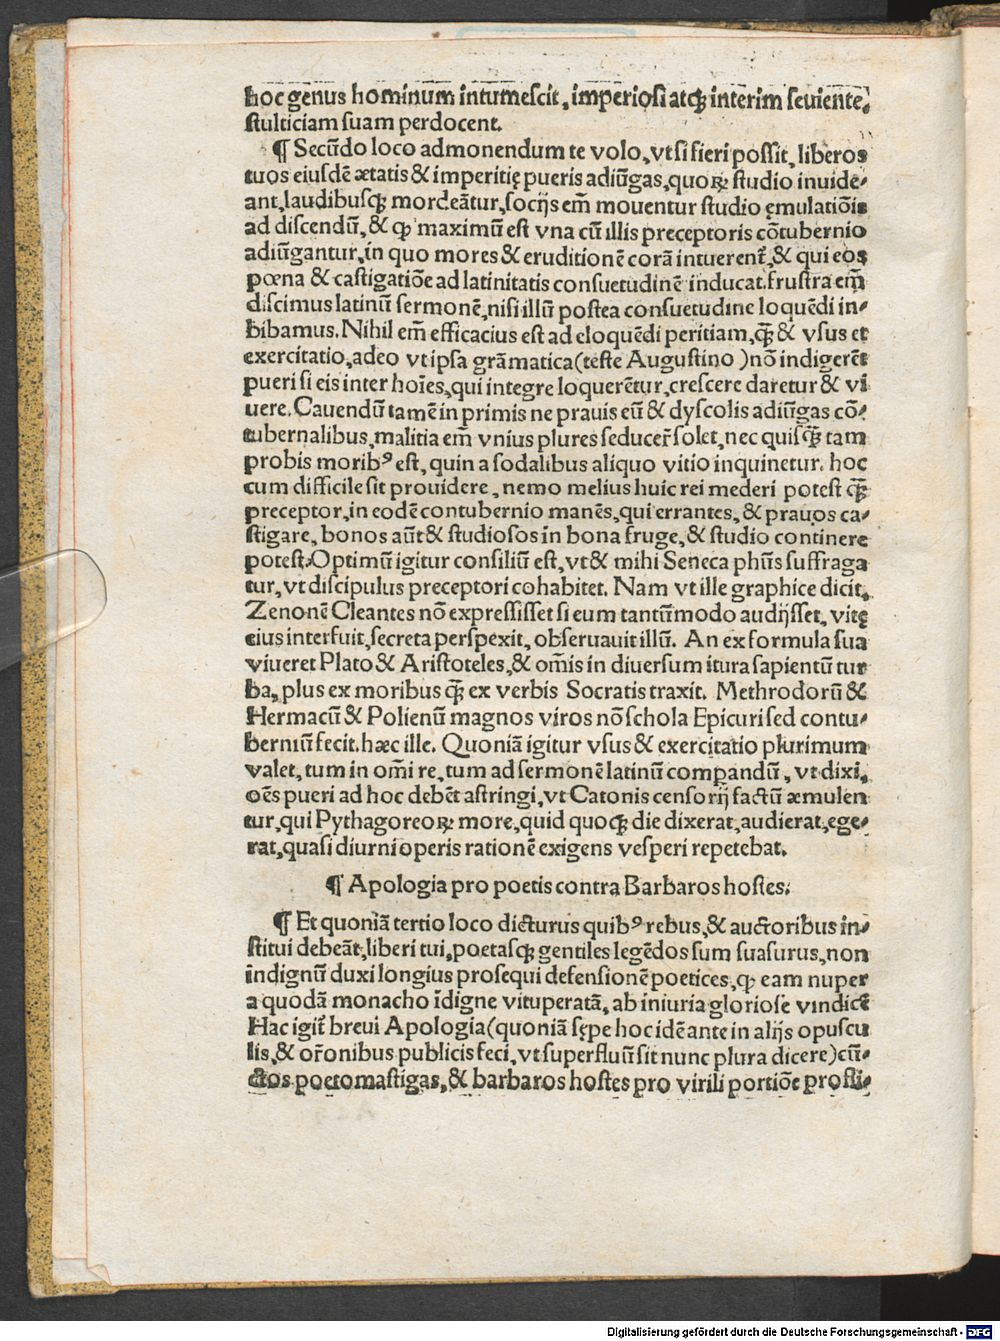 hoc genus hominum intumeſcit, imperioſi atqꝫ interim ſeuiente,
ſtulticiam ſuam perdocent.
¶ Secūdo loco admonendum te volo, vt ſi fieri poſſit, liberos
tuos eiuſdē ætatis & imperitię pueris adiūgas, quoꝝ ſtudio inuide⸗
ant, laudibuſqꝫ mordeātur, ſocijs em̄ mouentur ſtudio ęmulatiōis
ad diſcendū, & ꝙ maximū eſt vna cū illis preceptoris cōtubernio
adiūgantur, in quo mores & eruditionē corā intuerent᷑, & qui eos
pœna & caſtigatiōe ad latinitatis conſuetudinē inducat. fruſtra em̄
diſcimus latinū ſermonē, niſi illū poſtea conſuetudine loquēdi in⸗
bibamus. Nihil em̄ efficacius eſt ad eloquēdi peritiam, qꝫ̄ & vſus et
exercitatio, adeo vt ipſa grāmatica (teſte Auguſtino) nō indigerēt
pueri ſi eis inter hoīes, qui integre loquerētur, creſcere daretur & vi
uere. Cauendū tamē in primis ne prauis eū & dyſcolis adiūgas cō⸗
tubernalibus, malitia em̄ vnius plures ſeducer̄ ſolet, nec quiſqꝫ̄ tam
probis moribꝰ eſt, quin a ſodalibus aliquo vitio inquinetur. hoc
cum difficile ſit prouidere, nemo melius huic rei mederi poteſt qꝫ̄
preceptor, in eodē contubernio manēs, qui errantes, & prauos ca⸗
ſtigare, bonos aūt & ſtudioſos in bona fruge, & ſtudio continere
poteſt. Optimū igitur conſiliū eſt, vt & mihi Seneca phūs ſuffraga
tur, vt diſcipulus preceptori cohabitet. Nam vt ille graphice dicit,
Zenonē Cleantes nō expreſſiſſet ſi eum tantūmodo audijſſet, vitę
eius interfuit, ſecreta perſpexit, obſeruauit illū. An ex formula ſua
viueret Plato & Ariſtoteles, & om̄is in diuerſum itura ſapientū tur
ba, plus ex moribus qꝫ̄ ex verbis Socratis traxit. Methrodorū &
Hermacū & Polienū magnos viros nō ſchola Epicuri ſed contu⸗
berniū fecit. hæc ille. Quoniā igitur vſus & exercitatio plurimum
valet, tum in om̄i re, tum ad ſermonē latinū compandū, vt dixi,
oēs pueri ad hoc debēt aſtringi, vt Catonis cenſorij factū æmulen
tur, qui Pythagoreoꝝ more, quid quoqꝫ die dixerat, audierat, ege⸗
rat, quaſi diurni operis rationē exigens veſperi repetebat.
¶ Apologia pro poetis contra Barbaros hoſtes.
¶ Et quoniā tertio loco dicturus quibꝰ rebus, & auctoribus in⸗
ſtitui debeāt, liberi tui, poetaſqꝫ gentiles legēdos ſum ſuaſurus, non
indignū duxi longius proſequi defenſionē poetices, ꝙ eam nuper
a quodā monacho īdigne vituperatā, ab iniuria glorioſe vindicē
Hac igit᷑ breui Apologia (quoniā ſępe hoc idē ante in alijs opuſcu
lis, & or̄onibus publicis feci, vt ſuperfluū ſit nunc plura dicere) cū⸗
ctos poetomaſtigas, & barbaros hoſtes pro virili portiōe profli⸗
Digitalisierung gefördert durch die Deutsche Forschungsgemeinschaft - DFG